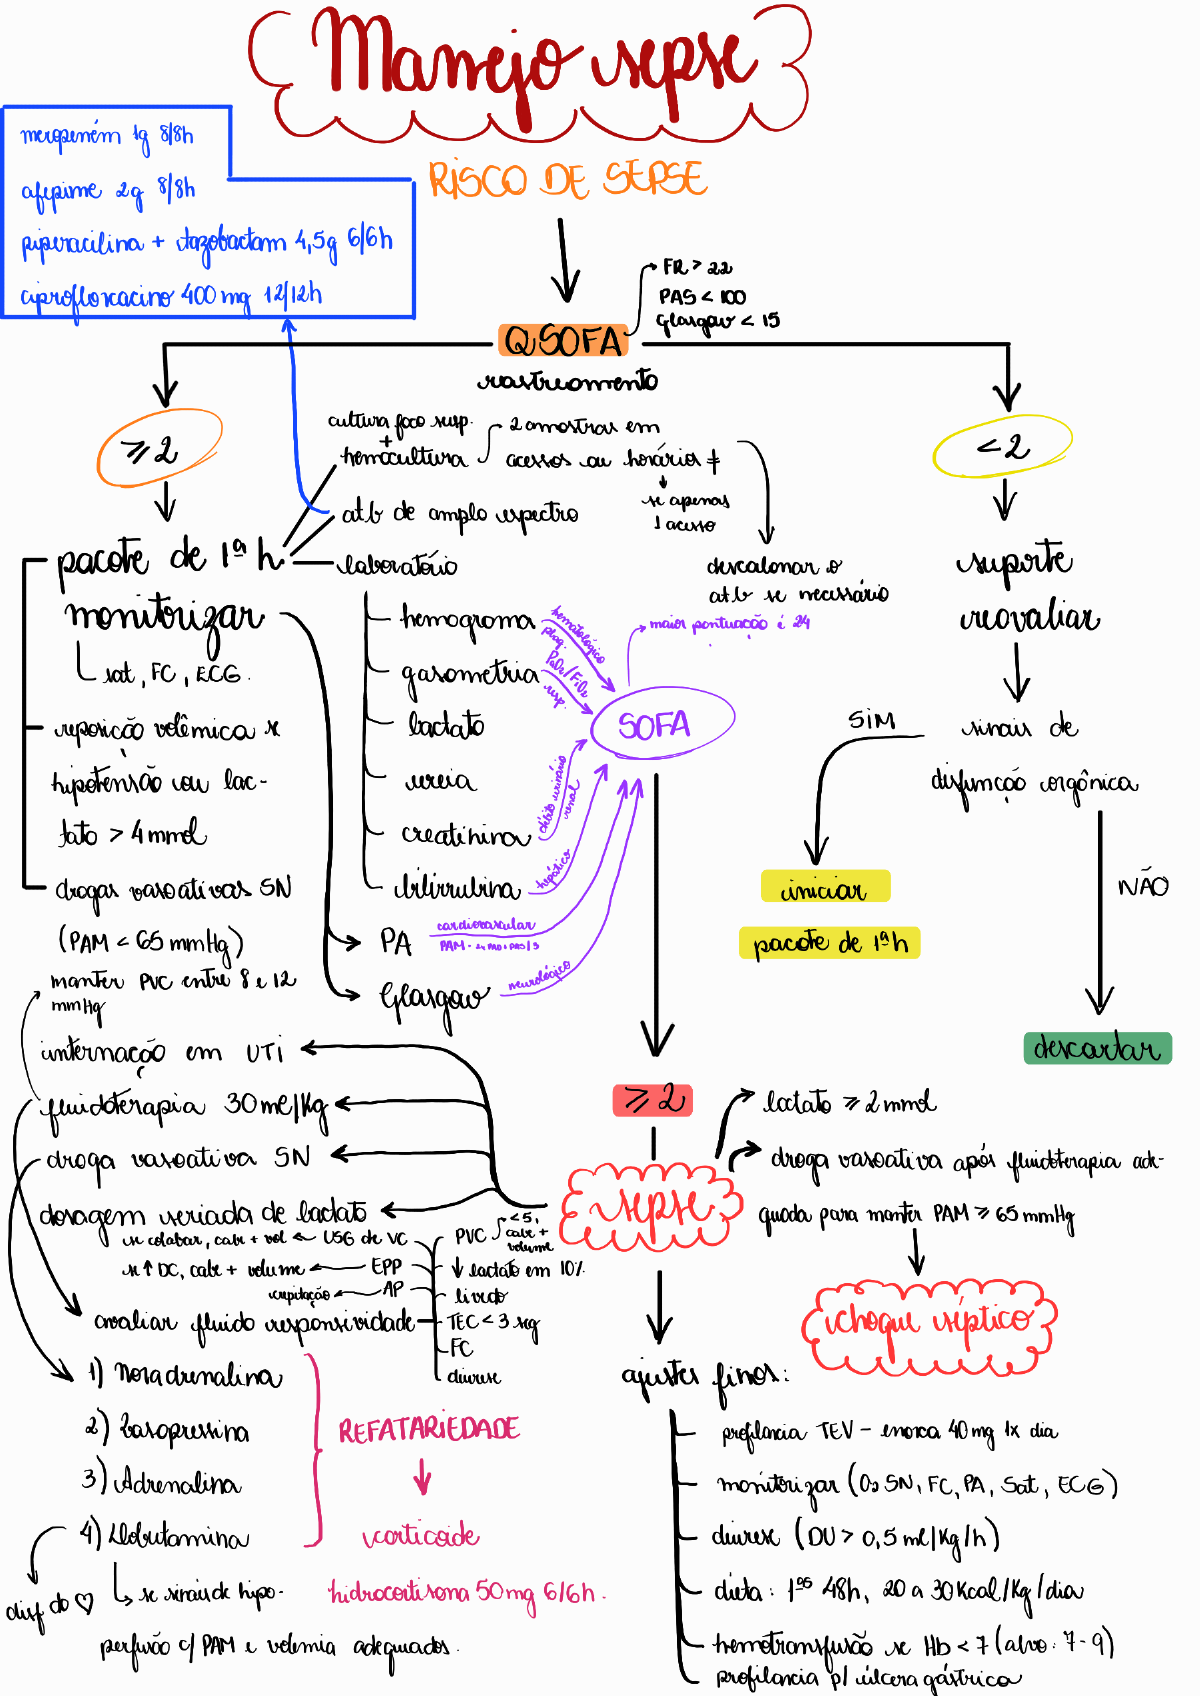 Manejo sepse
meropeném 1g 8/8h
afepime 2g 8/8h
piperacilina + tazobactam 4,5g 6/6h
ciprofloxacino 400mg 12/12h
RISCO DE SEPSE
FR > 22
PAS < 100
Glasgow < 15
QSOFA
rastreamento
≥2
<2
cultura foco susp.
+
hemocultura
2 amostras em
acessos ou horários ≠
se apenas
1 acesso
atb de amplo espectro
descalonar o
atb se necessário
pacote de 1ª h
laboratório
monitorizar
sat, FC, ECG.
reposição volêmica se
hipotensão ou lac-
tato > 4mmol
drogas vasoativas SN
(PAM < 65 mmHg)
manter PVC entre 8 e 12
mmHg
hemograma
gasometria
lactato
ureia
creatinina
bilirrubina
PA
Glasgow
hematológico
plaq.
PaO₂/FiO₂
resp.
débito urinário
renal
hepático
cardiovascular
PAM = 2x PAD + PAS/3
neurológico
maior pontuação é 24
SOFA
suporte
reavaliar
sinais de
disfunção orgânica
SIM
NÃO
iniciar
pacote de 1ª h
descartar
≥2
sepse
lactato ≥ 2mmol
droga vasoativa após fluidoterapia ade-
quada para manter PAM ≥ 65mmHg
choque séptico
internação em UTI
fluidoterapia 30ml/Kg
droga vasoativa SN
dosagem seriada de lactato
se colabar, cabe + vol ← USG de VC
se ↑ DC, cabe + volume ← EPP
crepitação ← AP
avaliar fluido responsividade
PVC
<5,
cabe +
volume
↓ lactato em 10%
livedo
TEC < 3 seg
FC
diurese
1) Noradrenalina
2) Vasopressina
3) Adrenalina
4) Dobutamina
disf do ♡
se sinais de hipo-
perfusão c/ PAM e volemia adequados.
REFATARIEDADE
corticoide
hidrocortisona 50mg 6/6h.
ajustes finos:
profilaxia TEV - enoxa 40mg 1x dia
monitorizar (O₂ SN, FC, PA, Sat, ECG)
diurese (DU > 0,5 ml/Kg/h)
dieta: 1ªˢ 48h, 20 a 30Kcal/Kg/dia
hemotransfusão se Hb < 7 (alvo: 7-9)
profilaxia p/ úlcera gástrica